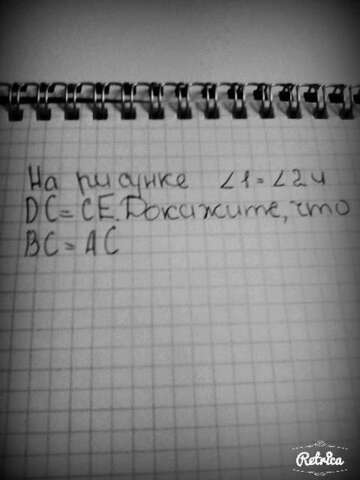 На рисунке ∠1=∠2 и
DC=CE. Докажите, что
BC=AC
Retrica